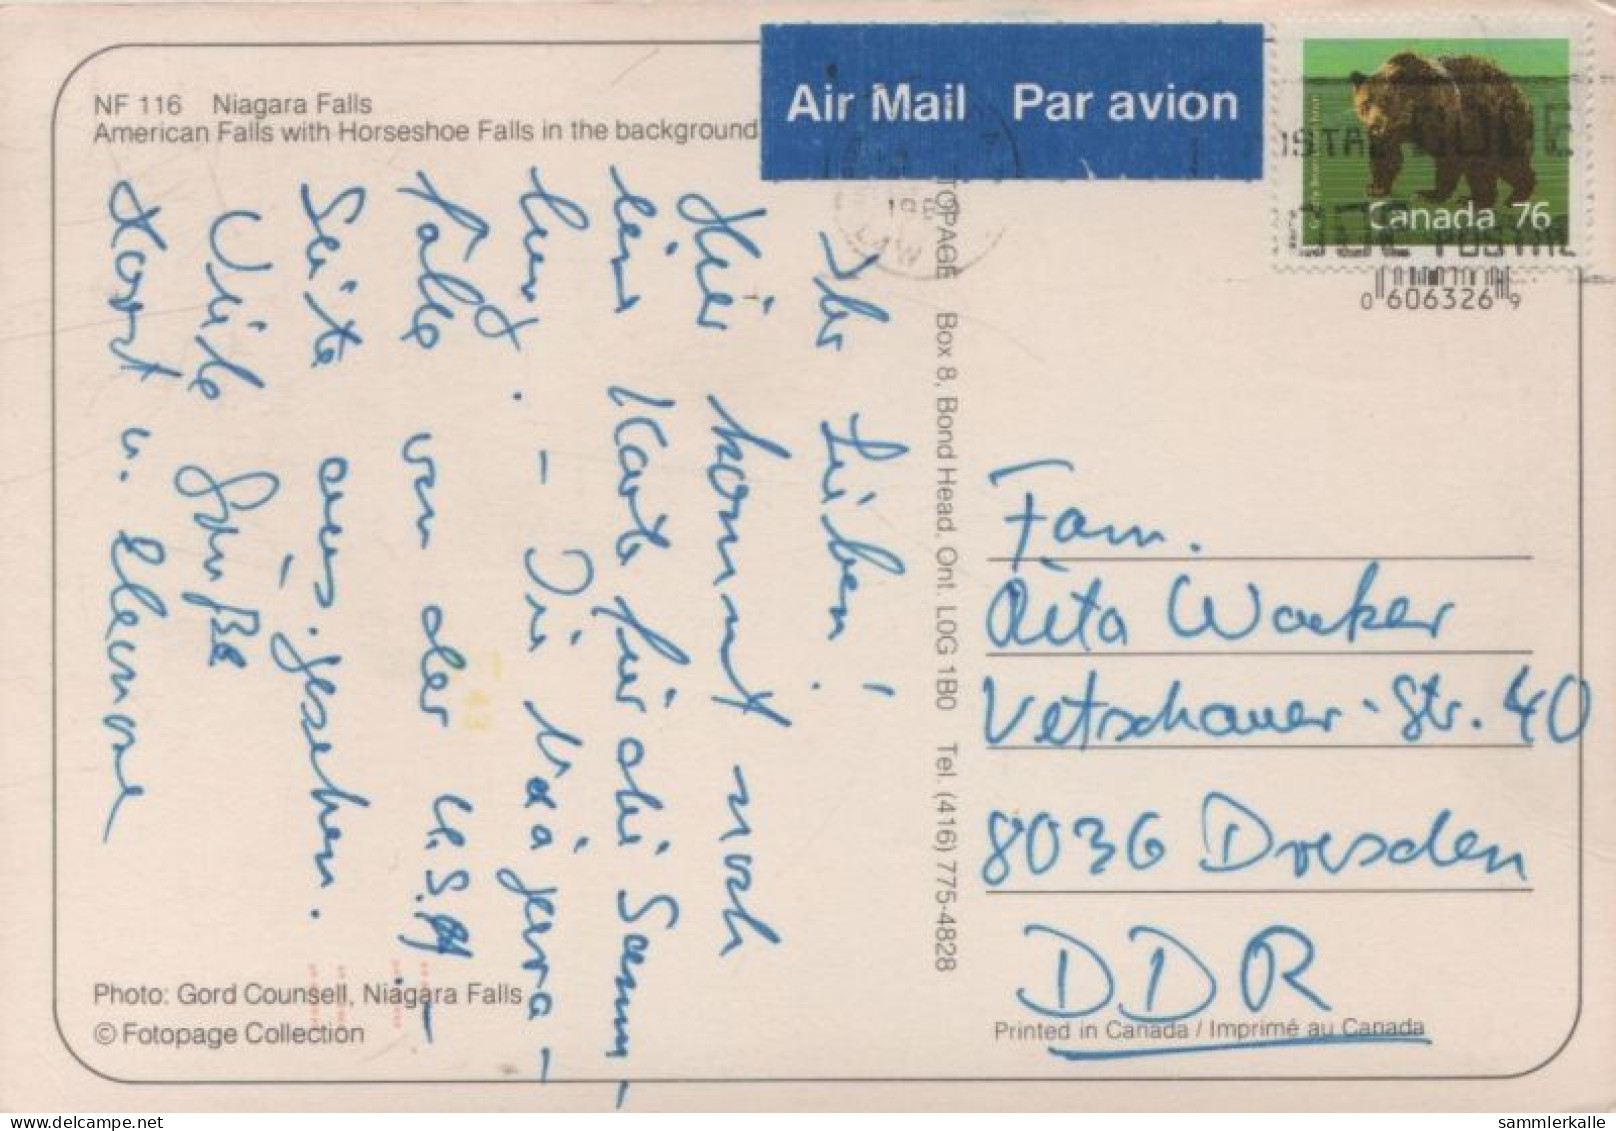 NF 116 Niagara Falls
American Falls with Horseshoe Falls in the background
Air Mail Par avion
Canada 76
POSTAL CODE
CODE POSTAL
0 606326 9
Ihr Lieben!
Hier kommt noch
eine Karte für die Samm-
lung. - Die Niagara-
fälle von der U.S.A.-
Seite aus gesehen.
Viele Grüße
Horst u. Eleonore
TOPAGE Box 8, Bond Head, Ont. L0G 1B0 Tel. (416) 775-4828
Fam.
Rita Wacker
Vetschauer-Str. 40
8036 Dresden
DDR
Photo: Gord Counsell, Niagara Falls
© Fotopage Collection
Printed in Canada / Imprimé au Canada
sammlerkalle